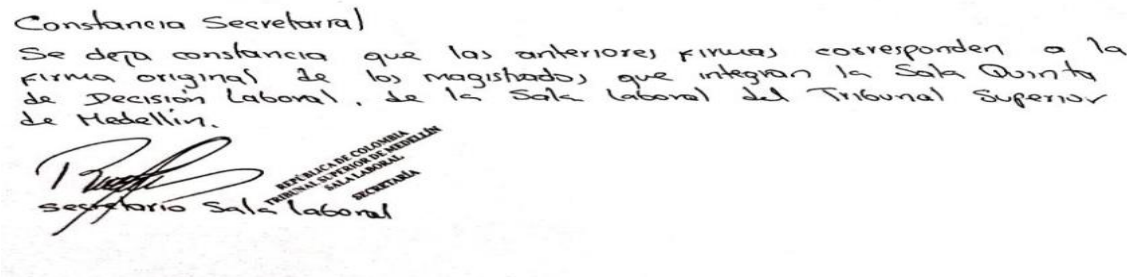 Constancia Secretarial
Se deja constancia que las anteriores firmas corresponden a la
firma original de los magistrados que integran la Sala Quinta
de Decisión Laboral, de la Sala Laboral del Tribunal Superior
de Medellín.
REPÚBLICA DE COLOMBIA
TRIBUNAL SUPERIOR DE MEDELLÍN
SALA LABORAL
SECRETARÍA
secretario Sala Laboral